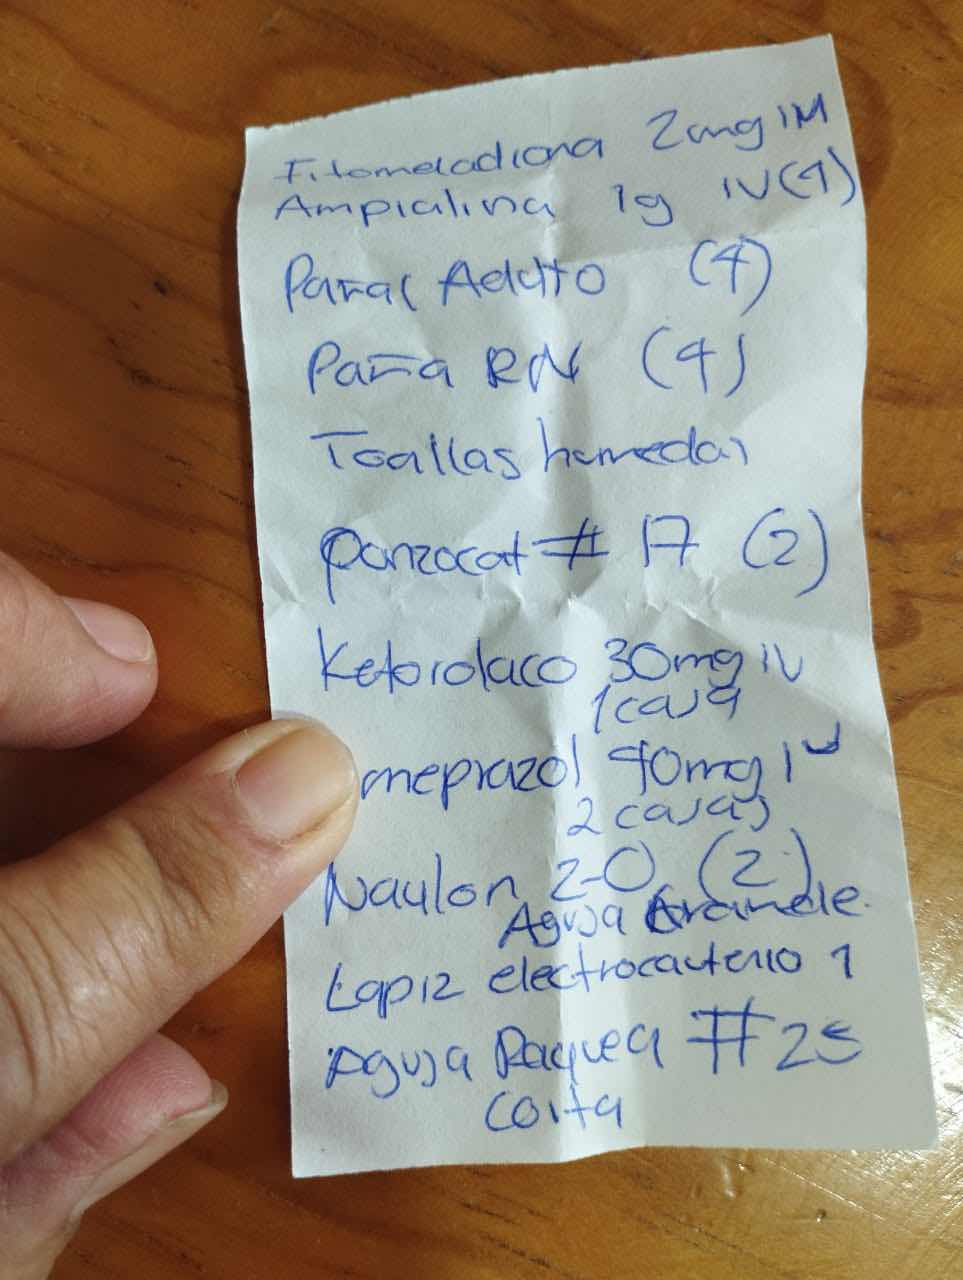 Fitomeladiona 2mg IM
Ampialina 1g IV(4)
Pañal Adulto (4)
Paña RN (4)
Toallas humedas
Panzocat # 17 (2)
Ketorolaco 30mg IV
1 caja
meprazol 40mg IV
2 cajas
Naylon 2-0 (2)
Aguja Grande.
Lapiz electrocauterio 1
Aguja Raquea # 25
Corta